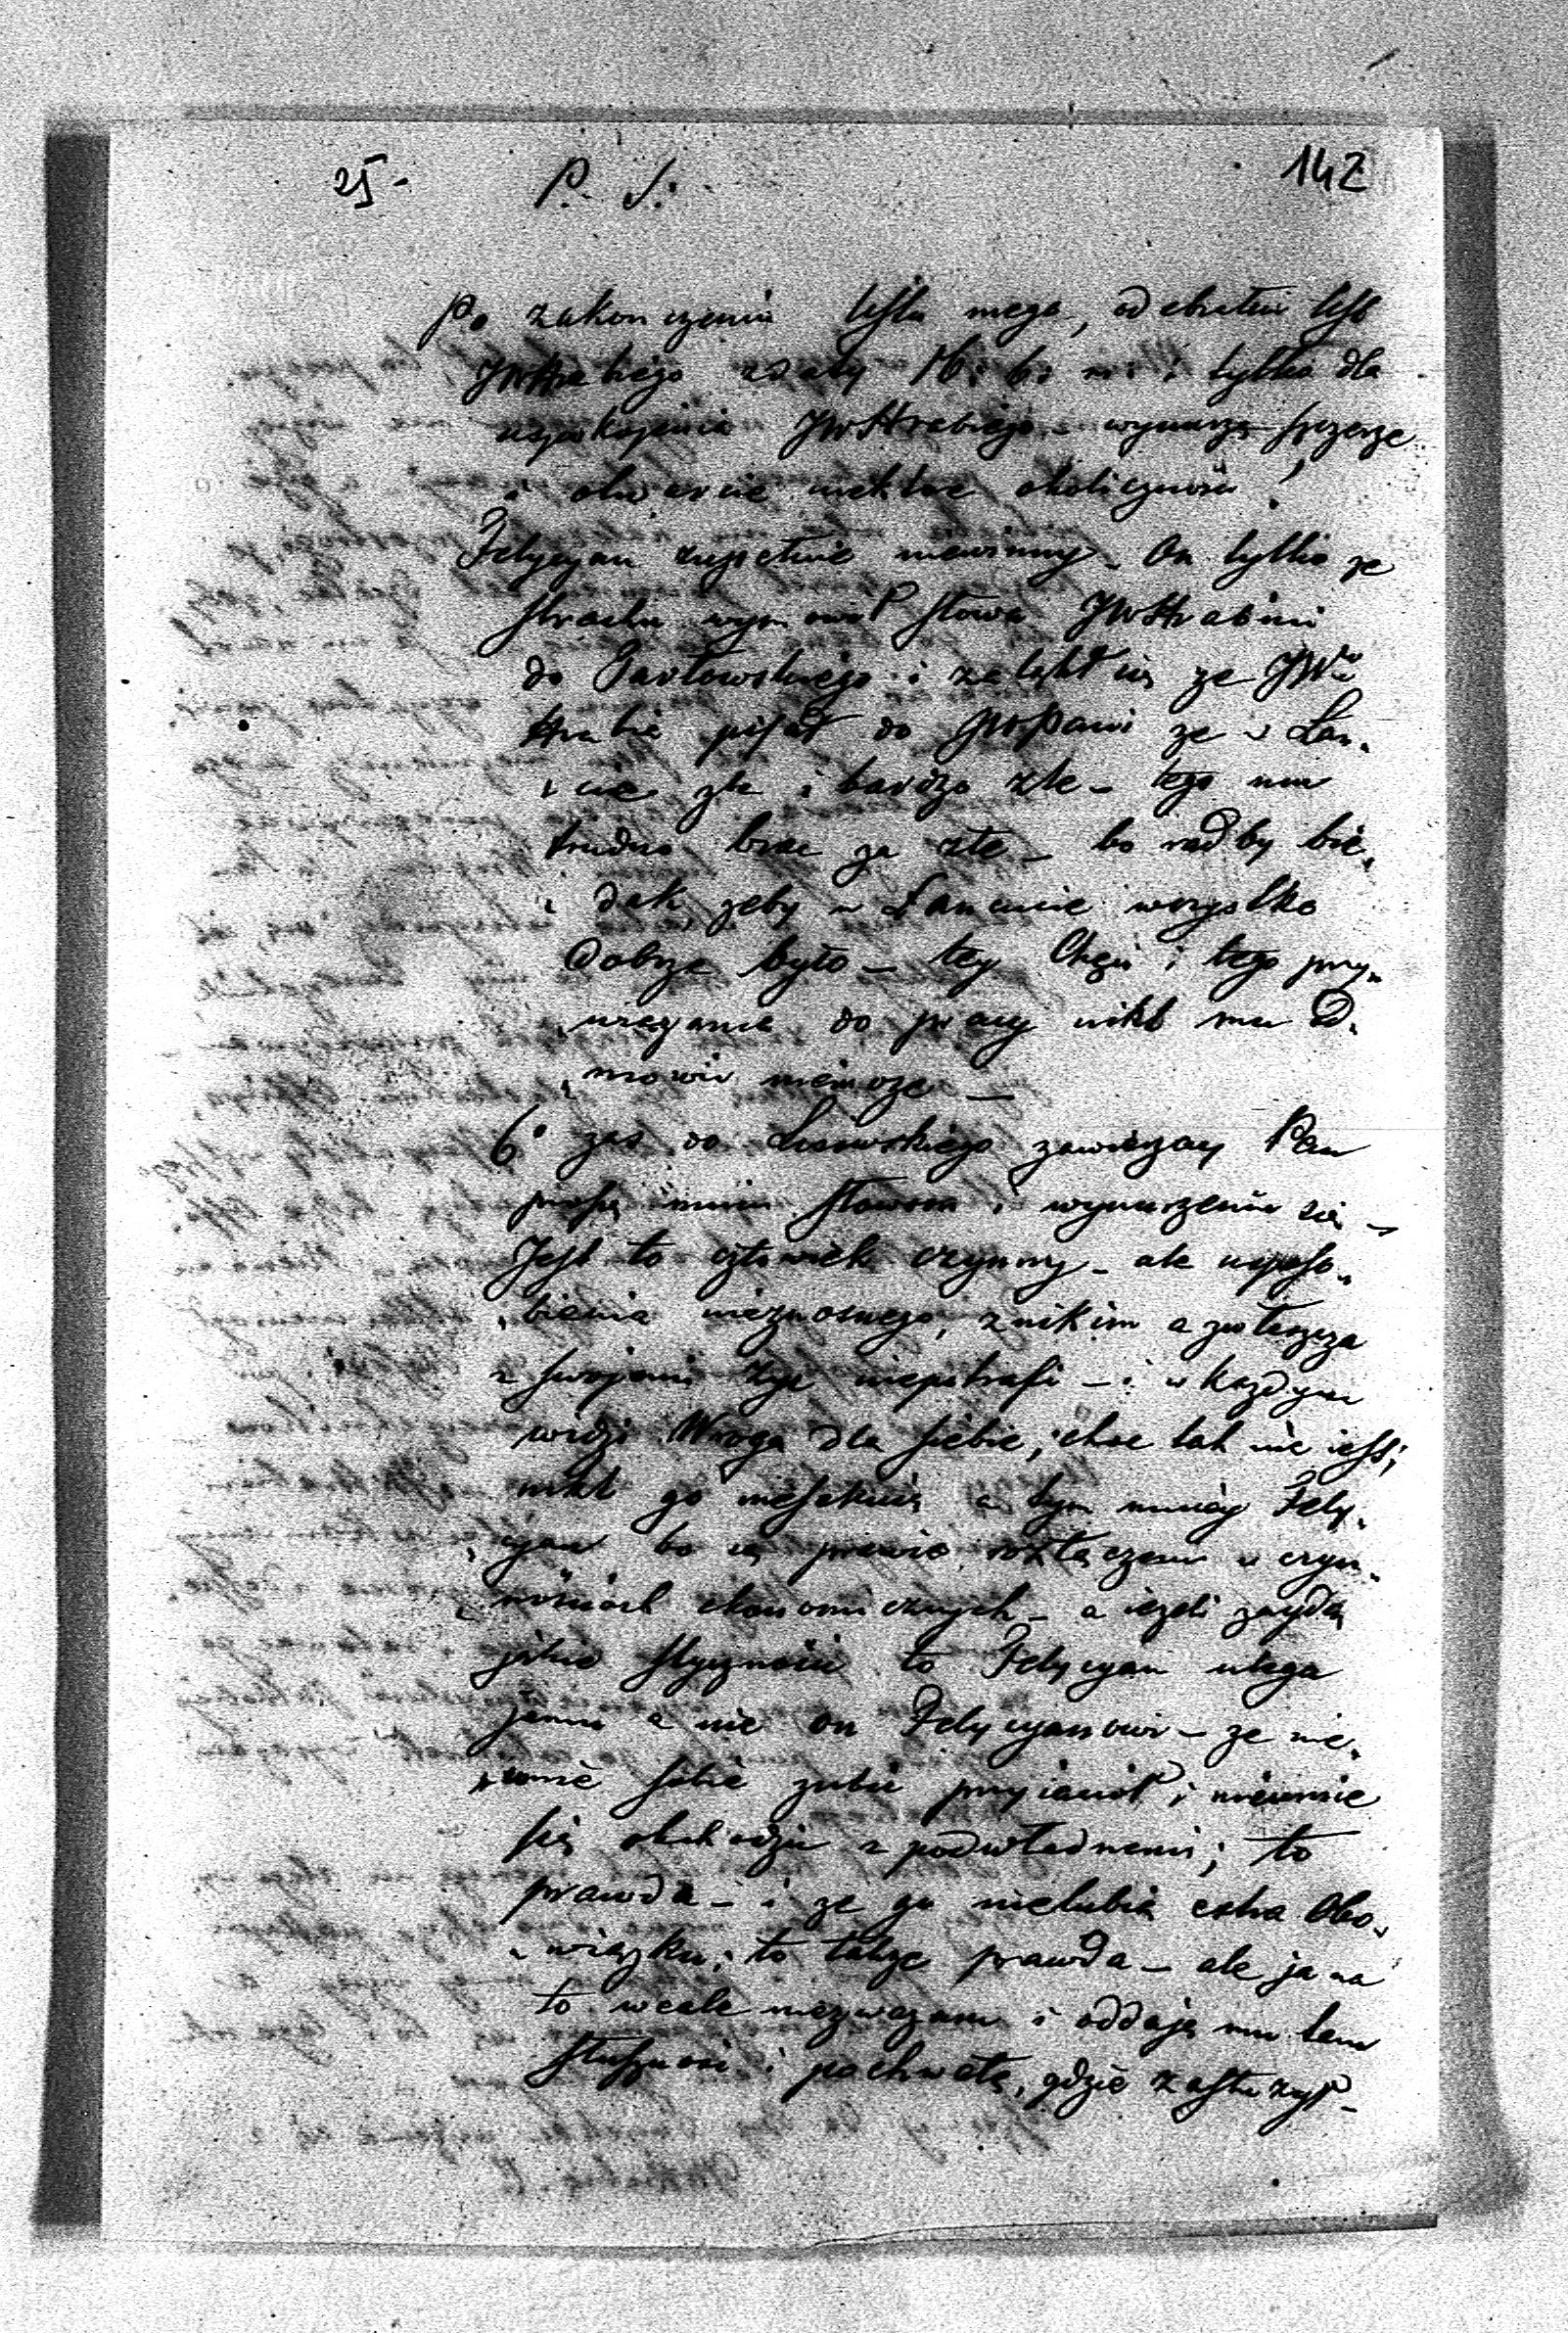 25- P. S. 142
Po zakonczeniu listu mego, odebrałem list
JWHrabiego z daty 16: b: m: i tylko dla
uspokojenia JWHrabiego – wynurzę szczerze
i otwarcie niektóre okoliczności!
Felycyan zupełnie niewinny – On tylko ze
strachu wymówił słowa JWHrabini
do Pawłowskiego i zaląkł się ze JW
Hrabia pisał do JWPani ze w Łan,
,cucie źle i bardzo zle – tego mu
trudno brac za złe – bo radby bie,
,dak, zeby w Łancucie wszystko
Dobrze było – tey Chęci i tego przy,
,wiązania do pracy nikt mu Od,
,mowić niemoze –
6° zas do Lisowskiego zawierzay Pan
proszę moim słowom i wynurzeniu się –
Jest to człowiek czynny – ale usposo,
,bienia nieznosnego, z nikim a zwłaszcza
z swojemi zyc niepotrafi – i w kazdym
widzi Wroga dla siebie; choc tak nie iest;
nikt go a tym mniey Fely,
,cyan bo są prawie rozłączeni w czyn,
,nościach ekonomicznych – a iezeli zayda
jakie styczności to Felycyan ulega
jemu a nie on Felycyanowi – ze nie,
,umie sobie zrobić przyiaciół i nieumie
się obchodzic z podwładnemi; to
prawda – i ze go nielubią extra Obo,
,wiązku; to takze prawda – ale ja na
to wcale niezwazam i oddaję mu tam
słuszność i pochwałę, gdzie zasłuzył –